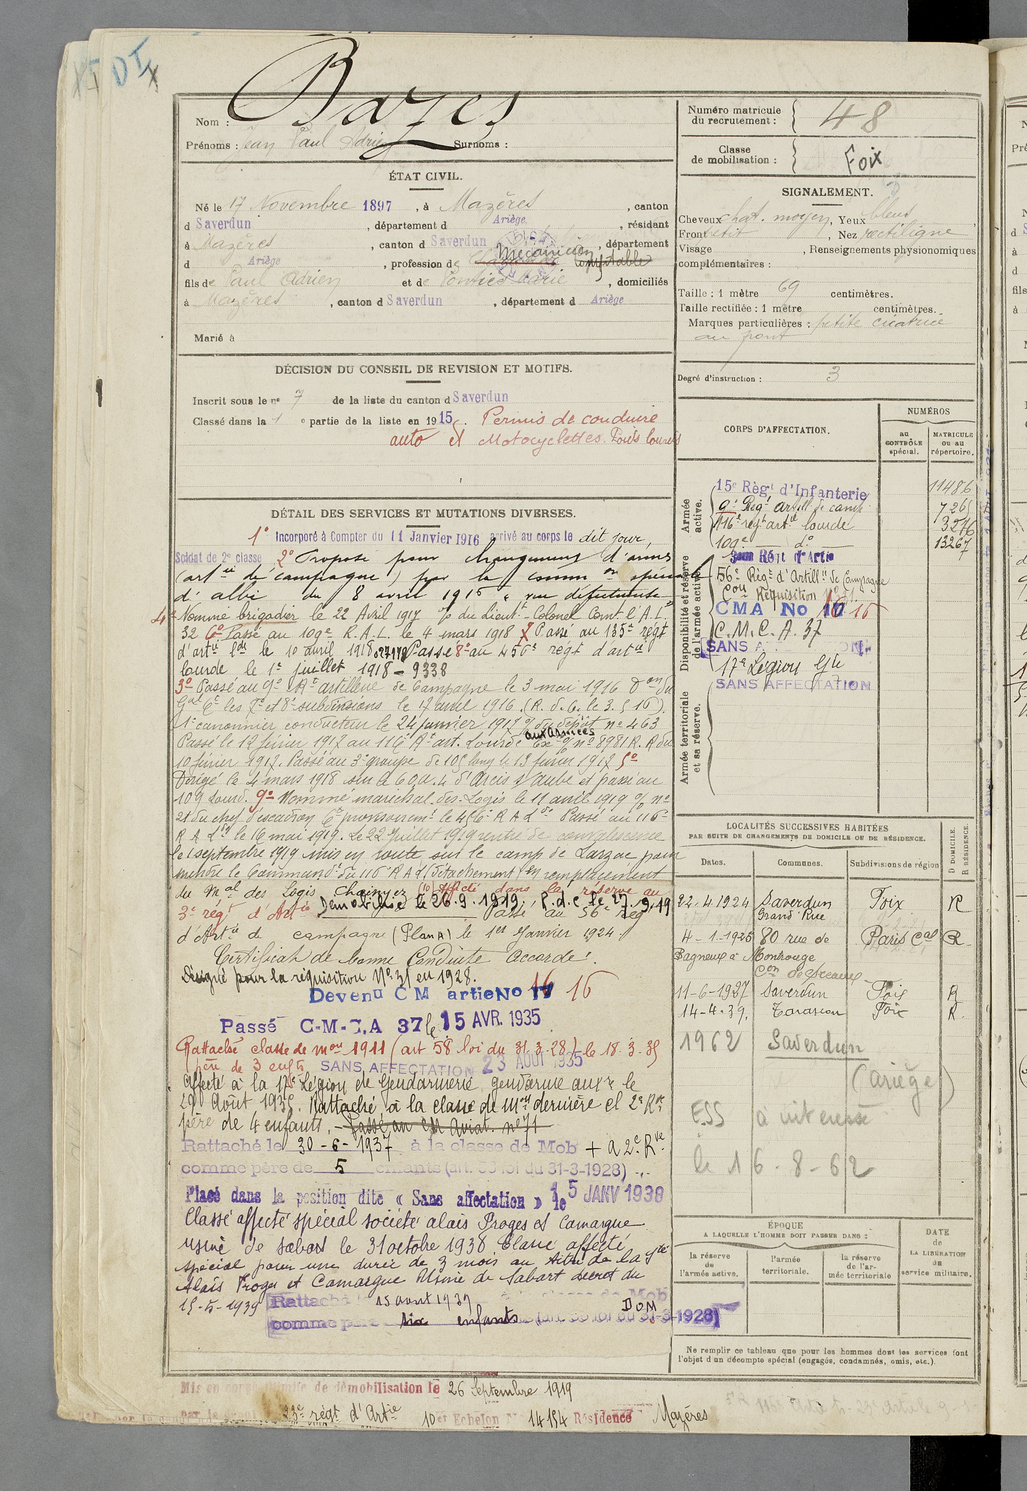 Bazes
Nom :
Prénoms : Jean Paul Adrien Surnoms :
ÉTAT CIVIL.
Né le 17 Novembre 1897, à Mazères, canton
d Saverdun, département d Ariège, résidant
à Mazères, canton d Saverdun, département
d Ariège, profession de Mécanicien comptable
fils de Paul Adrien et de Marie, domiciliés
à Mazères, canton d Saverdun, département d Ariège
Marié à
DÉCISION DU CONSEIL DE REVISION ET MOTIFS.
Inscrit sous le no 7 de la liste du canton d Saverdun
Classé dans la 1 e partie de la liste en 1915. Permis de conduire
auto et Motocyclettes. Poids lourds
DÉTAIL DES SERVICES ET MUTATIONS DIVERSES.
1° Incorporé à Compter du 11 Janvier 1916 arrivé au corps le dit jour,
Soldat de 2e classe, 2° Proposé pour changement d'arme
(artie de campagne) par la common spéciale
d'albi du 8 avril 1916
4° Nommé brigadier le 22 Avril 1917 du Lieut-Colonel Comt l'A.L.
32 6° Passé au 109e R.A.L. le 4 mars 1918 7° Passé au 135e régt
d'artie Lde le 10 avril 1918 Passé 8° au 456e régt d'artie
lourde le 1er juillet 1918 - 9338
3° Passé au 9e Rt artillerie de Campagne le 3 mai 1916 Don du
Gal Ct les 7e et 8e subdivisions le 17 avril 1916. (R. d. C. le 3.5.16)
1er canonnier conducteur le 24 janvier 1917 no 463
Passé le 12 février 1917 au 116e Rt art. Lourde aux armées no 8981 R.
10 février 1917. Passé au 3e groupe de 105 long le 13 février 1917 5°
Dirigé le 4 mars 1918 sur d'Arcis s/aube et passé au
109 Lourd. 9° Nommé maréchal-des-Logis le 11 avril 1919 no
21 du chef d'escadron Ct provisoiremt le 456e R A Lde Passé au 116e
R A Lde le 16 mai 1919. Le 22 Juillet 1919 rentré de convalescence
le 1 septembre 1919 mis en route sur le camp de Larzac pour
du 116e R A L (Détachement) en remplacement
du Mal des Logis (10) Affecté dans la réserve au
3e régt d'Artie Démobilisé le 26.9.1919. P.d.c. le 27.9.19 Passé au 56e Régt
d'Artie de campagne (Plan A) le 1er Janvier 1924
Certificat de bonne Conduite Accordé.
Désigné pour la réquisition No 31 en 1928.
Devenu C M artie No 17 16 16
Passé C-M-C.A 37 le 15 AVR. 1935
Rattaché classe de mon 1911 (art 58 loi du 31.3.28) le 18.3.35
père de 3 enfts SANS AFFECTATION 23 AOUT 1935
Affecté à la 17e Légion de Gendarmerie, gendarme auxre le
29 Août 1935. Rattaché à la classe de mon dernière et 2e Rve
père de 4 enfants. Passé au CM Aviat. no 71
Rattaché le 30-6-1937 à la classe de Mob + a 2e. Rve
comme père de 5 enfants (art. 58 loi du 31-3-1928)
Placé dans la position dite « Sans affectation » le 15 JANV 1938
Classé affecté spécial société alais Froges et Camargue
usine de Sabart le 31 octobre 1938 Classé affecté
spécial pour une durée de 3 mois au titre de la Sté
Alais Froges et Camargue Usine de Sabart decret du
15-5-1939 Rattaché le 15 avril 1939 classe de Mob
comme père six enfants (art. 58 loi du 31-3-1928) DOM
Mis en congé illimité de démobilisation le 26 Septembre 1919
23e régt d'Artie 10e Echelon No 14154 Résidence Mazères
Numéro matricule du recrutement : 48
Classe de mobilisation : Foix
SIGNALEMENT.
Cheveux chat. moyen, Yeux bleus
Front petit, Nez rectiligne
Visage , Renseignements physionomiques
complémentaires :
Taille : 1 mètre 69 centimètres.
Taille rectifiée : 1 mètre centimètres.
Marques particulières : petite cicatrice
au front
Degré d'instruction : 3
CORPS D'AFFECTATION.
NUMÉROS
au CONTRÔLE spécial.
MATRICULE ou au répertoire.
Armée active.
15e Régt d'Infanterie 11486
9e Régt artill de camp. 7265
116e régt artie lourde 3276
109e do 13267
Disponibilité et réserve de l'armée active.
Régt d'Artie
56e Régt d'Artillie de Campagne
Con Réquisition
CMA No 17 16 16
C.M.C.A. 37
SANS AFFECTATION
17e Légion Gie
SANS AFFECTATION
Armée territoriale et sa réserve.
LOCALITÉS SUCCESSIVES HABITÉES
PAR SUITE DE CHANGEMENTS DE DOMICILE OU DE RÉSIDENCE.
Dates. Communes. Subdivisions de région. D DOMICILE. R RÉSIDENCE.
22.4.1924 Saverdun Foix R
Grand'Rue
4-1-1926 80 rue de Paris Cal R
Bagneux à Montrouge
Con de Sceaux
11-6-1927 Saverdun Foix R
14-4-39. Tarascon Foix R.
1962 Saverdun
(Ariège)
ESS a intéressé
le 16-8-62
ÉPOQUE
A LAQUELLE L'HOMME DOIT PASSER DANS :
la réserve de l'armée active.
l'armée territoriale.
la réserve de l'armée territoriale
DATE de LA LIBÉRATION du service militaire.
Ne remplir ce tableau que pour les hommes dont les services font
l'objet d'un décompte spécial (engagés, condamnés, omis, etc.).